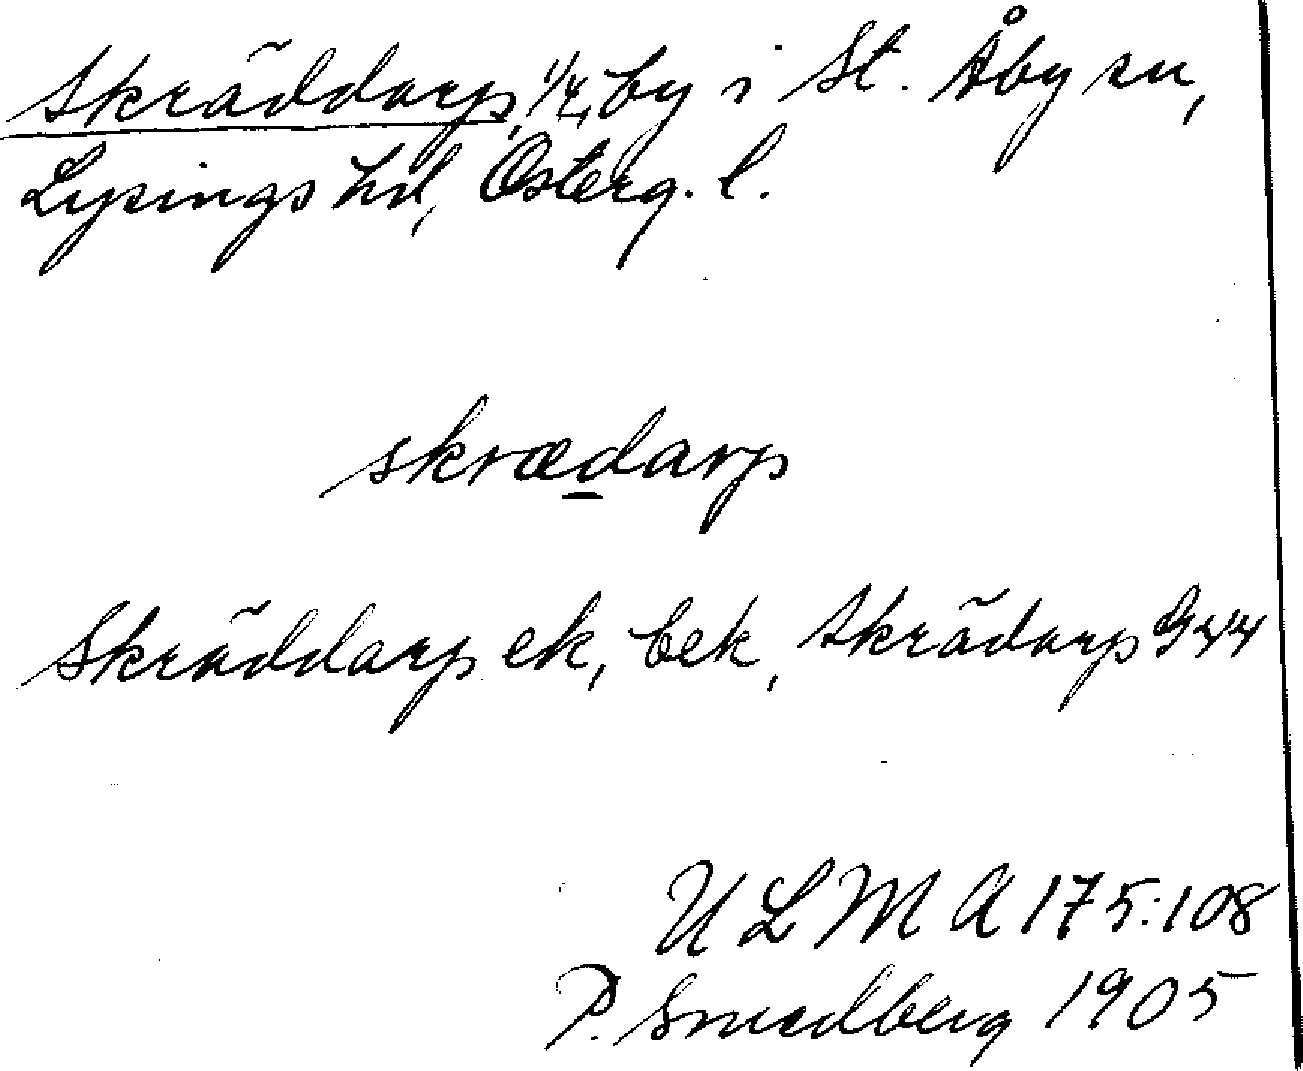 Skräddarp, 1/4, by i St. Åby sn,
Lysings hd, Österg. l.
skrædarp
Skräddarp ek, bek, Skrädarp
U L M A 175:108
P. Smedberg 1905